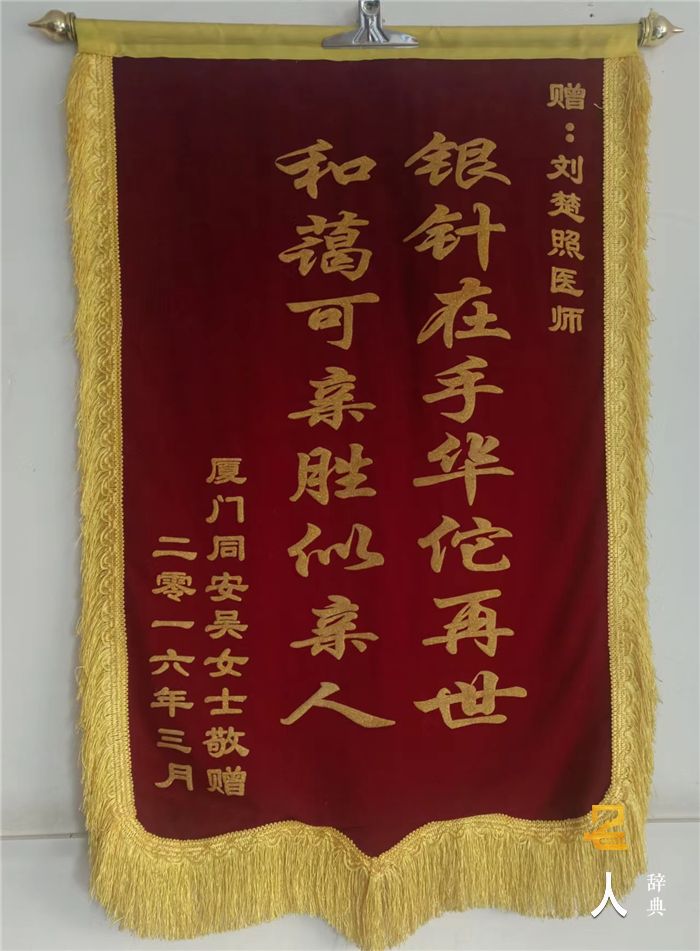 赠：刘楚照医师
银针在手华佗再世
和蔼可亲胜似亲人
厦门同安吴女士敬赠
二零一六年三月
名人
辞典